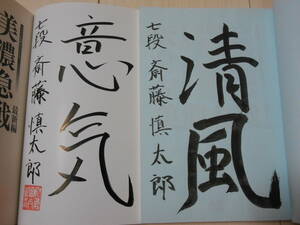 清風
七段 斎藤慎太郎
意気
七段 斎藤慎太郎
美濃急戦
最新編